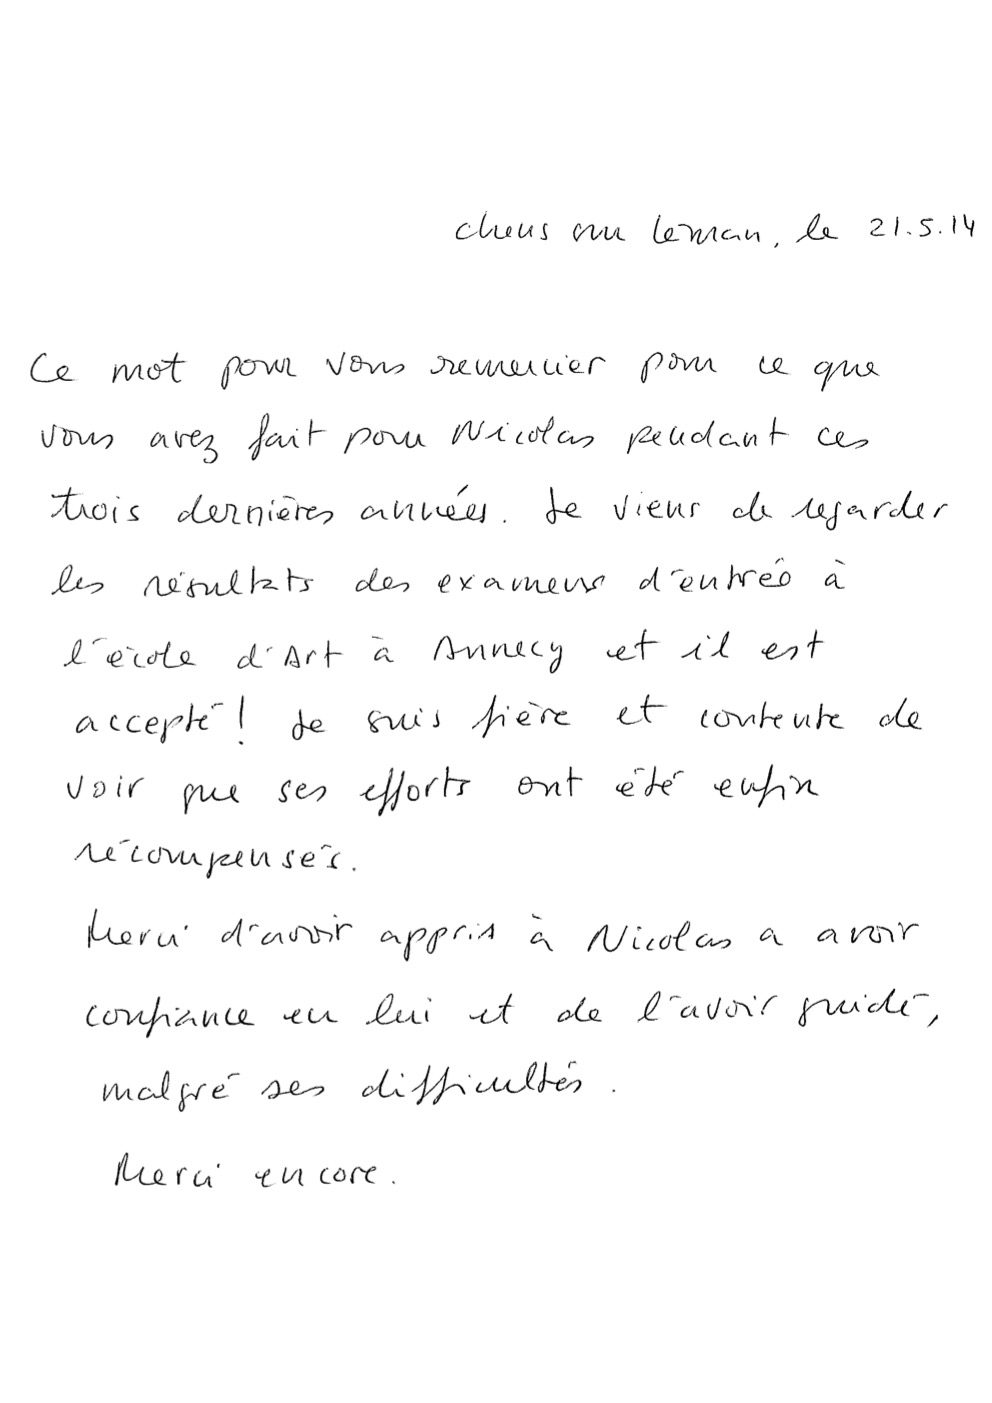 chens sur Leman, le 21.5.14
Ce mot pour vous remercier pour ce que
vous avez fait pour Nicolas pendant ces
trois dernières années. Je viens de regarder
les résultats des examens d'entrée à
l'école d'Art à Annecy et il est
accepté! Je suis fière et contente de
voir que ses efforts ont été enfin
récompensés.
Merci d'avoir appris à Nicolas a avoir
confiance en lui et de l'avoir guidé,
malgré ses difficultés.
Merci encore.